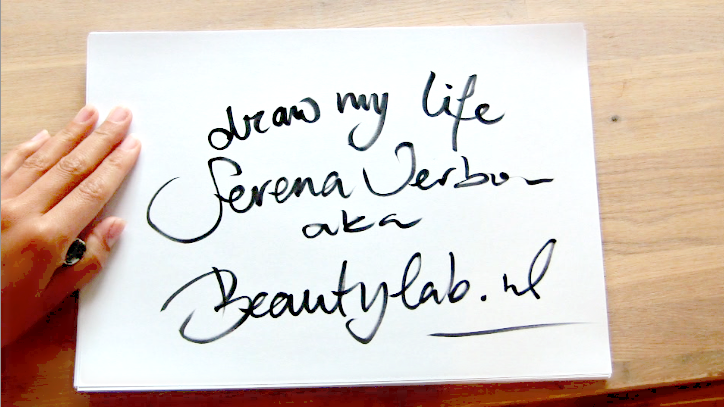 draw my life
Serena Verbo
aka
Beautylab.nl